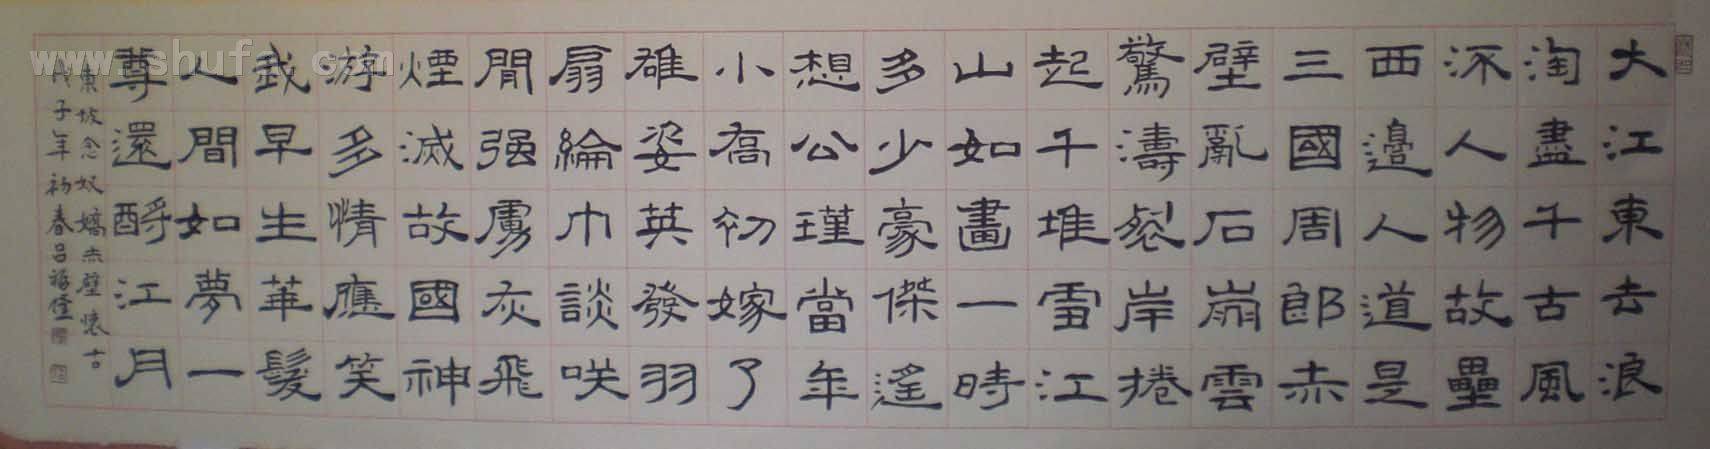 大江東去浪
淘盡千古風
流人物故壘
西邊人道是
三國周郎赤
壁亂石崩雲
驚濤裂岸捲
起千堆雪江
山如畫一時
多少豪傑遙
想公瑾當年
小喬初嫁了
雄姿英發羽
扇綸巾談笑
間强虜灰飛
煙滅故國神
游多情應笑
我早生華髮
人間如夢一
尊還酹江月
東坡念奴嬌赤壁懷古
戊子年初春呂福
www.shufa.com